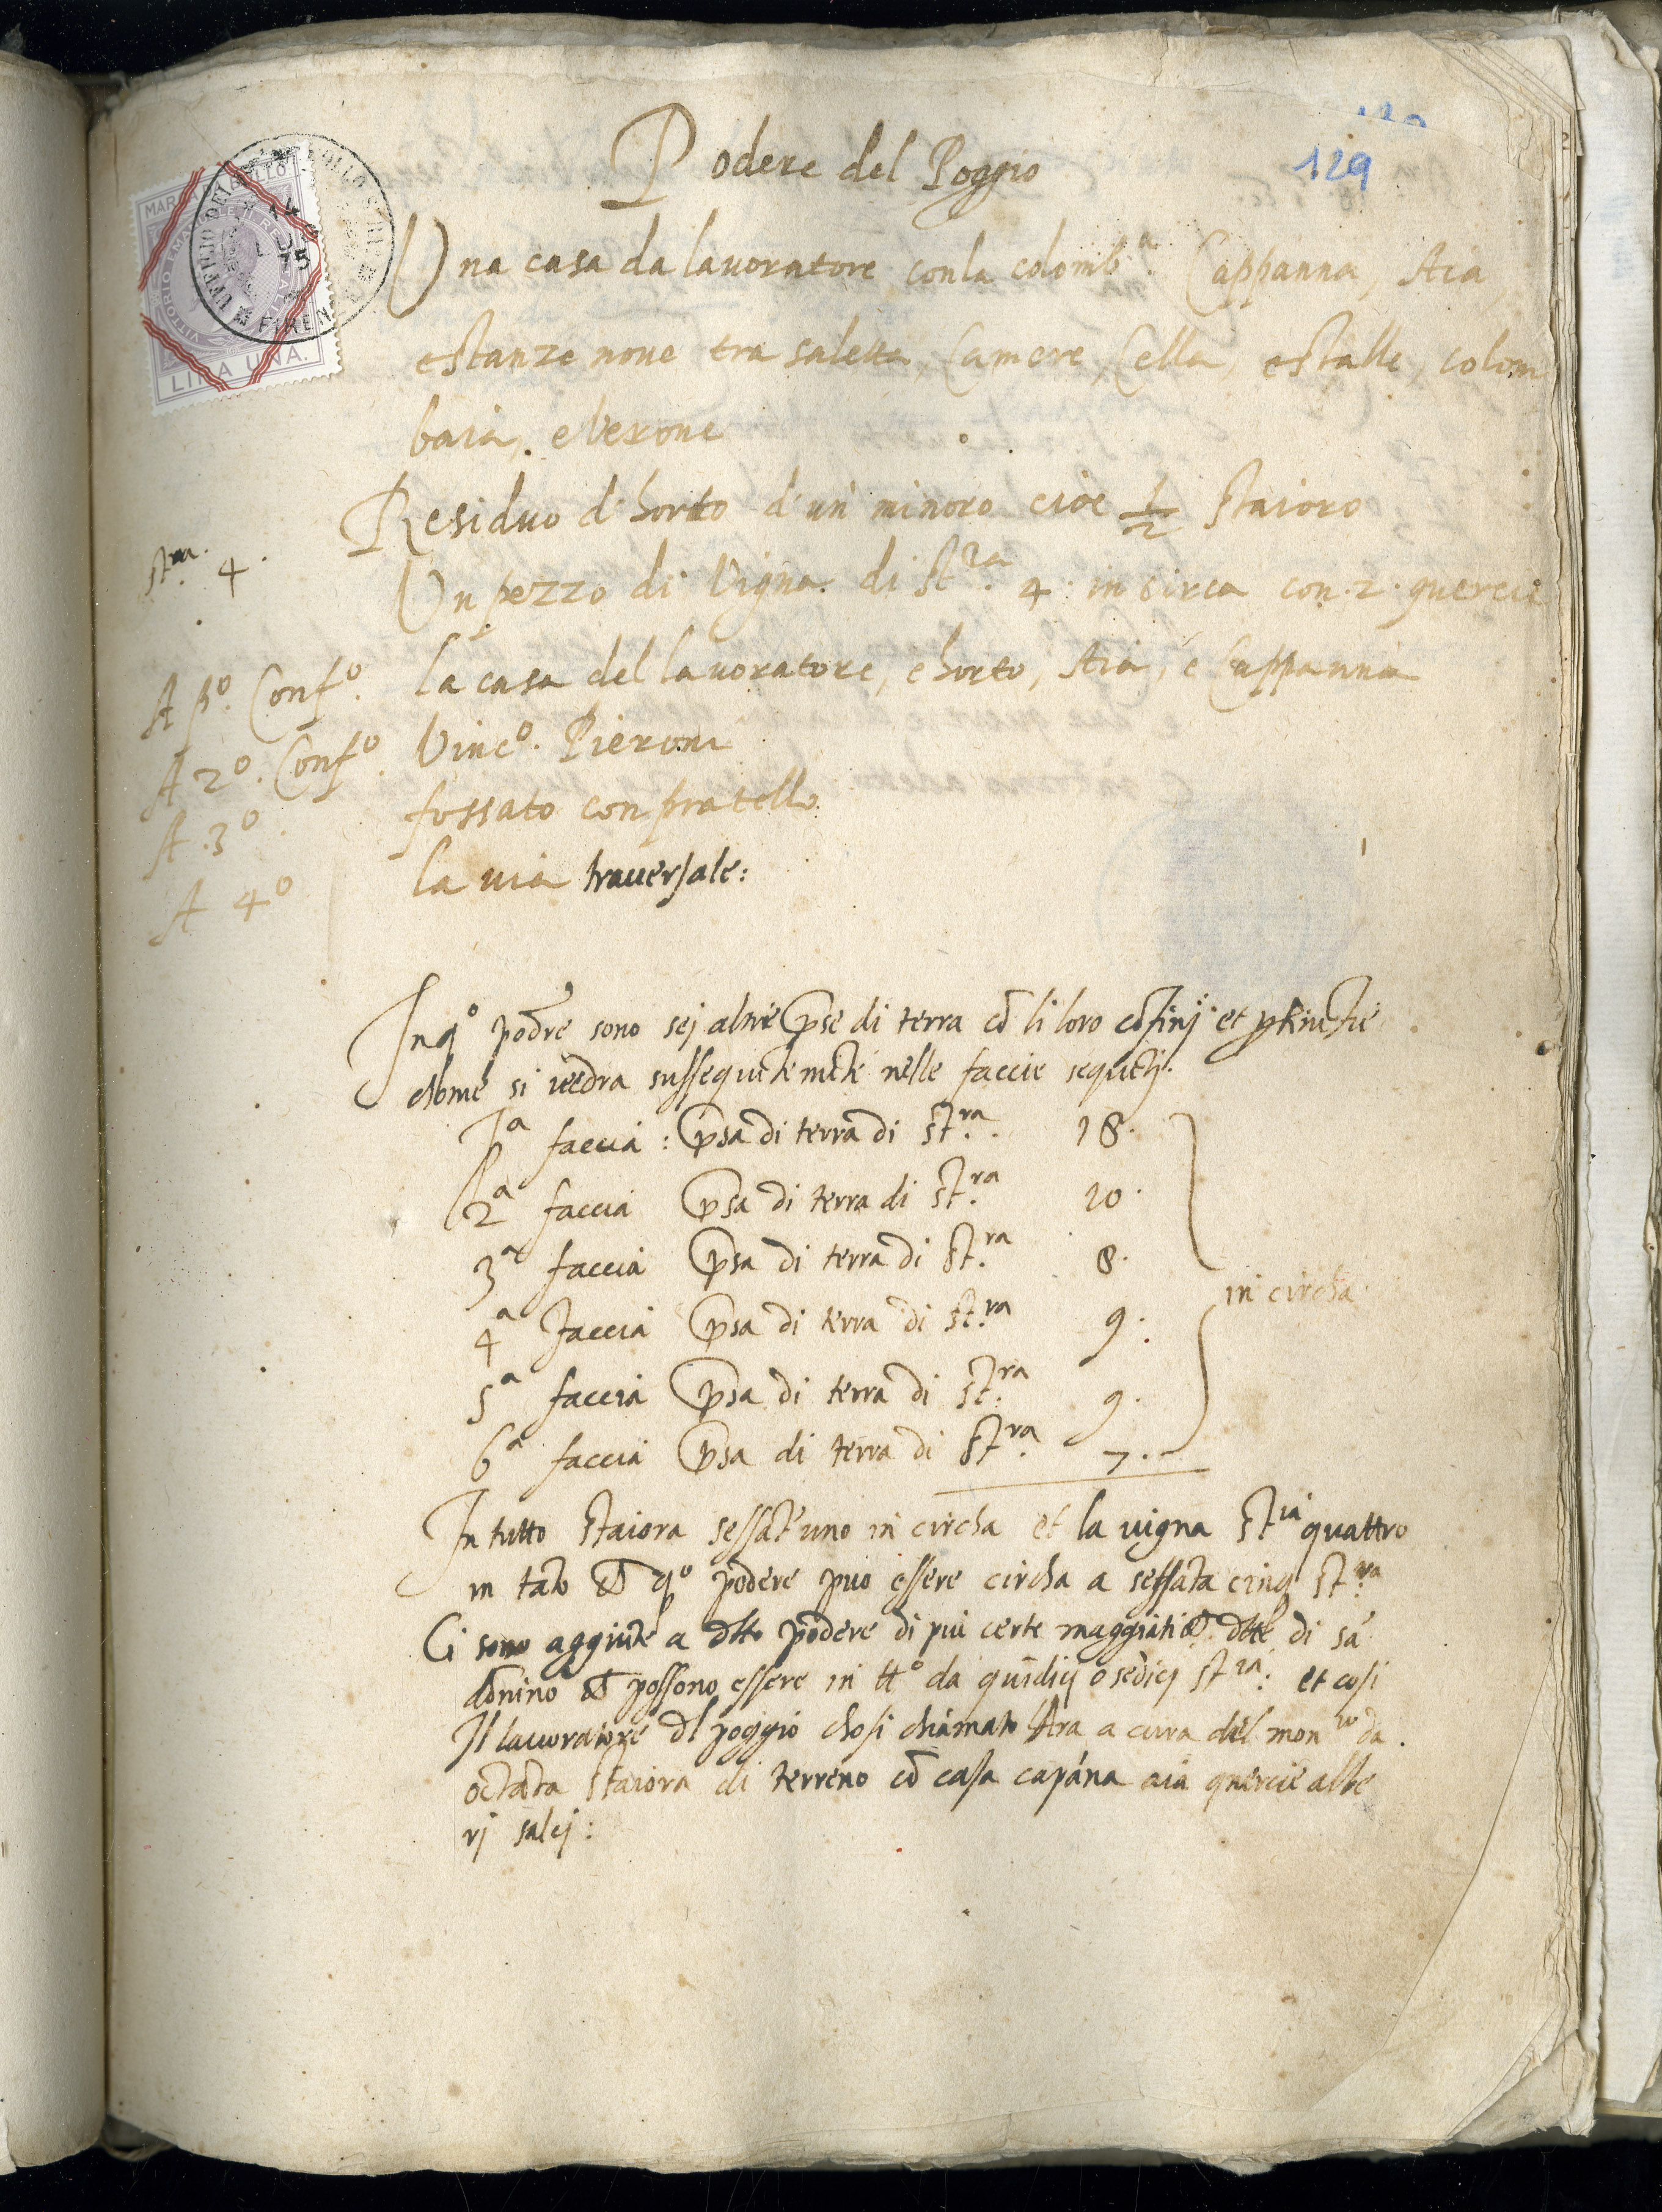 129
Podere del Poggio
MARCA DA BOLLO
VITTORIO EMANUELE II RE D'ITALIA
LIRA UNA.
FIRENZE
Una casa da lauoratore con la colomb.ª Cappanna, Aia,
e stanze noue tra saletta, Camere, Cella, e stalle, colom
baia, e Verone
Residuo d'horto d'un minoro cioe 1/2 staioro
st.ra 4.
Un pezzo di Vigna di st.ra 4 in circa con 2. quercie
A p.º Conf.º la casa del lauoratore, e horto, Aia, e Cappanna
A 2º. Conf.º Vinc.º Pieroni
A 3º. fossato con pratello
A 4º la uia trauersale:
In q.º podre sono sej altre p̄se di terra cō li loro cōfinj et
chome si uedra sussequētemēte nelle faccie sequēti.
1ª faccia: p̄sa di terra di st.ra 18.
2ª faccia p̄sa di terra di st.ra 10.
3ª faccia p̄sa di terra di st.ra 8.
4ª faccia p̄sa di terra di st.ra 9.
in circha
5ª faccia p̄sa di terra di st.ra 9.
6ª faccia p̄sa di terra di st.ra 7.
In tutto staiora sessāt'uno in circha et la uigna st.ra quattro
in tāto q.º podere puo essere circha a sessāta cinq st.ra
Ci sono aggiūte a dtto podere di piu certe dtte di sā
dōnino possono essere in tt.º da quīdicj o sedicj st.ra: et cosi
Il lauoratore dl poggio chosi chiamato Ara a cura del mon.ro da
octāta staiora di terreno cō casa capāna aia quercie albe
rj salcj: